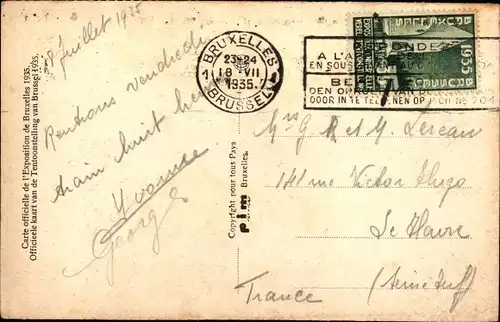 18 Juillet 1935
Rentrons vendredi
train huit he
Yvonne
Georges
Carte officielle de l'Exposition de Bruxelles 1935.
Officieele kaart van de Tentoonstelling van Brussel 1935.
Copyright pour tous Pays
pim Bruxelles.
BRUXELLES
23-24
18 VII
1935
BRUSSEL
A L'A
EN SOUS
BE
DEN OPRO VAN D
DOOR IN TE TE EN OP
BRUXELLES 1935
1935 BRUSSEL
Mrs G. R et M.
141 rue Victor Hugo
Le Havre
(Seine Inf)
France